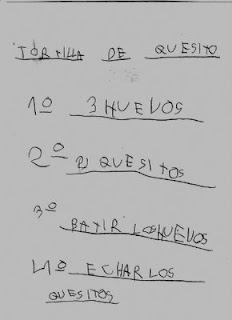 TORTILLA DE QUESITO
1º 3 HUEVOS
2º 2 QUESITOS
3º BATIR LOS HUEVOS
4º ECHAR LOS
QUESITOS